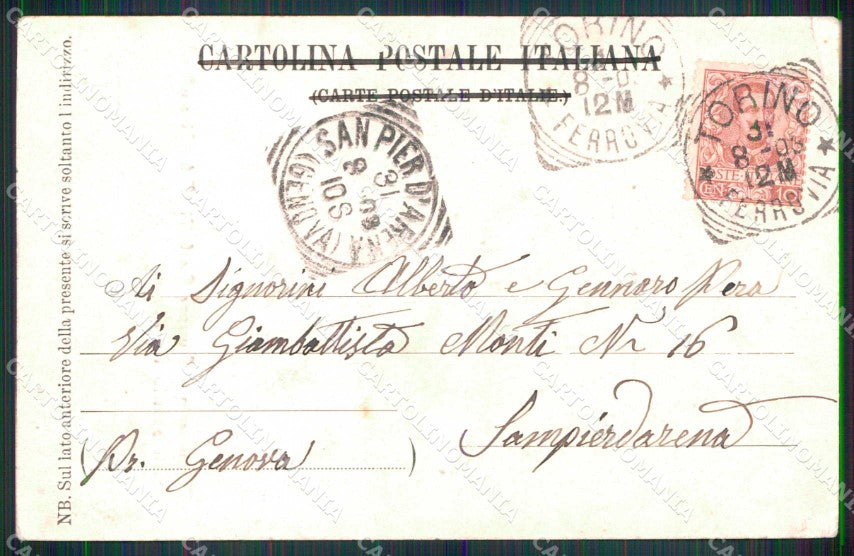 CARTOLINA POSTALE ITALIANA
(CARTE POSTALE D'ITALIE.)
TORINO
8 - 0
12 M
FERROVIA
TORINO
31
8 - 03
12 M
FERROVIA
POSTE
CEN. 10
SAN PIER D'ARENA
(GENOVA)
31
8
10S
Ai Signorini Alberto e Gennaro Pera
Via Giambattista Monti N 16
Sampierdarena
(Pr. Genova)
NB. Sul lato anteriore della presente si scrive soltanto l indirizzo.
CARTOLINOMANIA